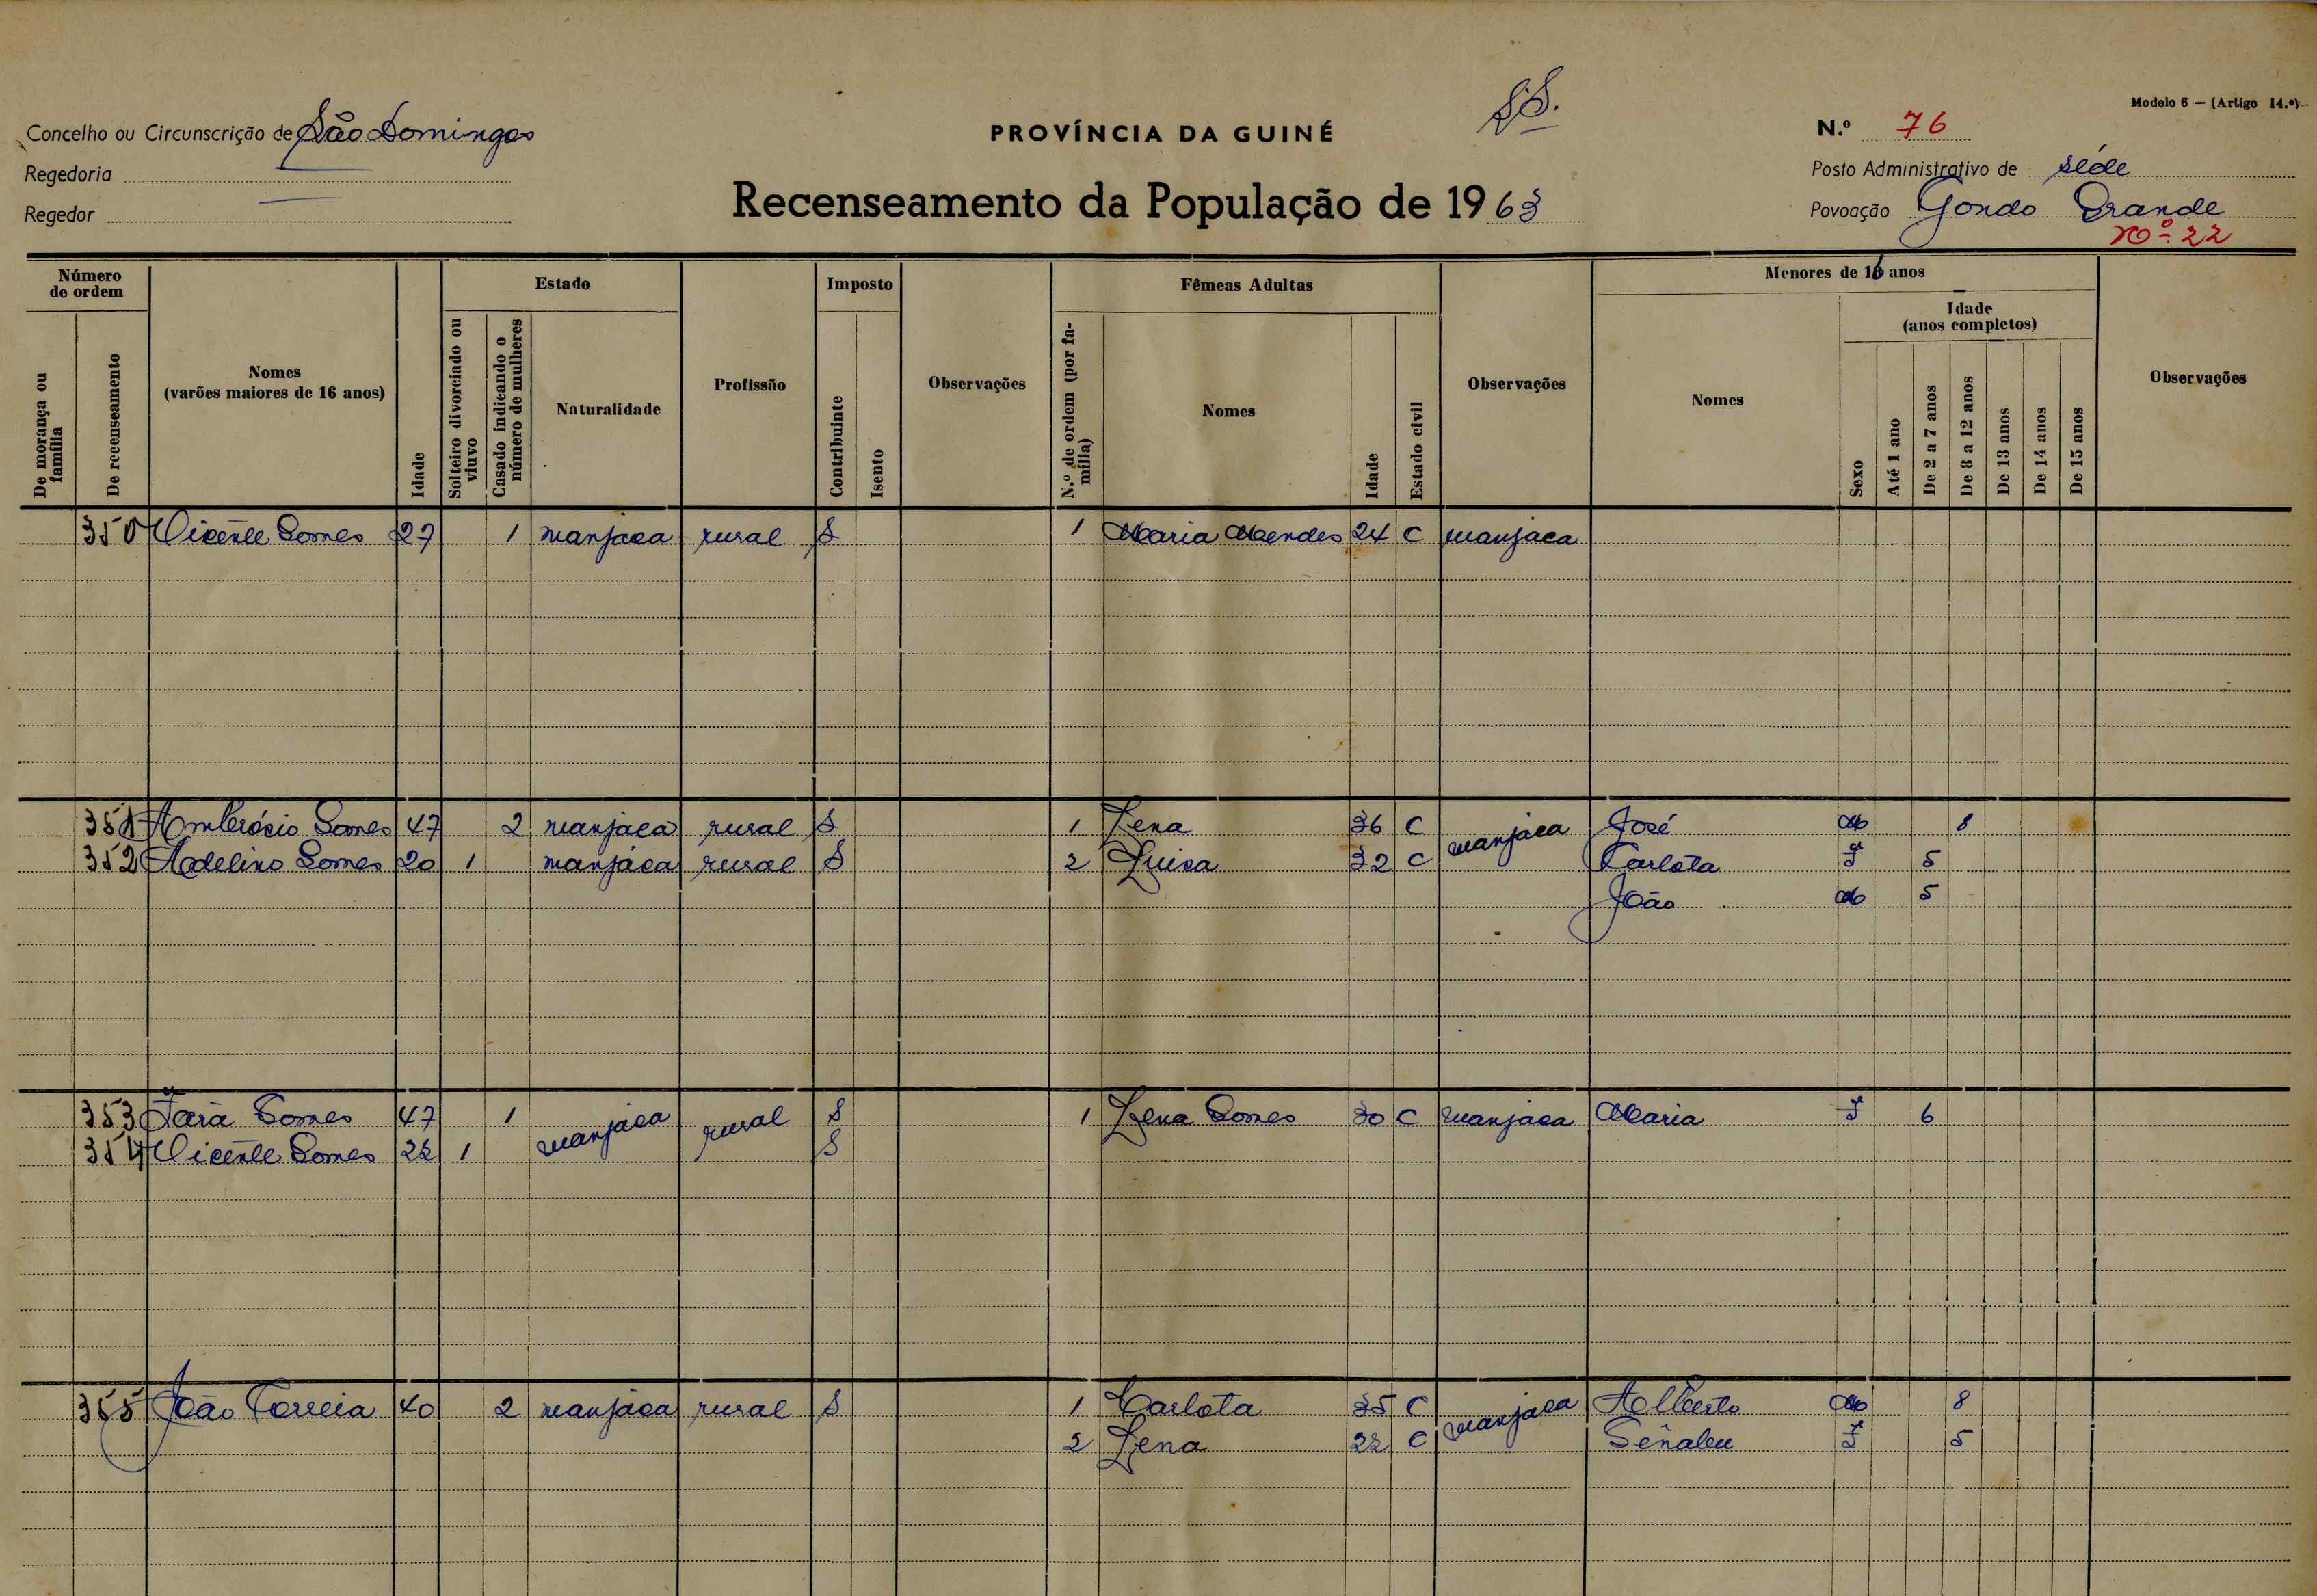 Modelo 6 — (Artigo 14.º)
Concelho ou Circunscrição de São Domingos
PROVÍNCIA DA GUINÉ
N.º 76
Regedoria
Posto Administrativo de séde
Regedor
Recenseamento da População de 1963
Povoação Gondo Grande
Nº 22
Número de ordem
De morança ou família
De recenseamento
Nomes
(varões maiores de 16 anos)
Idade
Estado
Solteiro divorciado ou viuvo
Casado indicando o número de mulheres
Naturalidade
Profissão
Imposto
Contribuinte
Isento
Observações
Fêmeas Adultas
N.º de ordem (por família)
Nomes
Idade
Estado civil
Observações
Menores de 16 anos
Nomes
Sexo
Idade
(anos completos)
Até 1 ano
De 2 a 7 anos
De 8 a 12 anos
De 13 anos
De 14 anos
De 15 anos
Observações
350 Vicente Gomes 27 1 manjaca rural S 1 Maria Mendes 24 C manjaca
351 Ambrósio Gomes 47 2 manjaca rural S 1 Lena 36 C manjaca José M 8
352 Adelino Gomes 20 1 manjaca rural S 2 Luisa 32 C Carlota F 5
João M 5
353 Gomes 47 1 manjaca rural S 1 Lena Gomes 30 C manjaca Maria F 6
354 Vicente Gomes 22 1 S
355 João Correia 40 2 manjaca rural S 1 Carlota 35 C manjaca Alberto M 8
2 Lena 22 C F 5